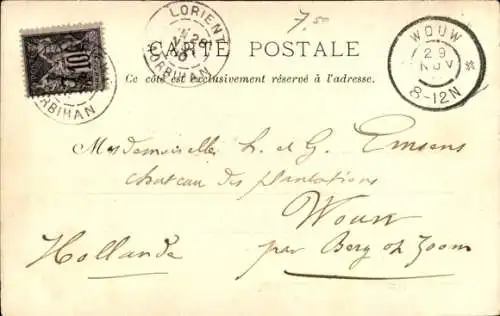 7.50
LORIENT
28
MORBIHAN
CARTE POSTALE
Ce côté est exclusivement réservé à l'adresse.
10
MORBIHAN
WOUW
29
NOV
8-12N
Mesdemoiselles h. et G. Emsens
chateau des plantations
Wouw
Hollande par Berg op Zoom